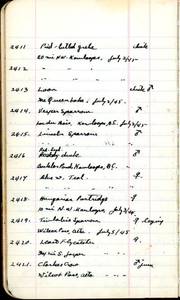 2411 Pied-billed grebe chick
20 mi N.W. Kamloops, July 2/45
2412 " "
" "
2413 Loon chick ♂
McQueen Lake, July 2/45
2414 Vesper Sparrow ♂
Kamloops, B.C.
2415 Lincoln Sparrow ♂
" "
2416 Ruddy duck ♂
Kamloops, B.C.
2417 Blue w. Teal ♀
" "
2418 Hungarian Partridge ♀
mi N.W. Kamloops July 3/45
2419 Timberline Sparrow ♀ laying
Wilcox Pass, Alta. July 5/45
2420 Least Flycatcher ♀
mi S. Jasper
2421 ♂ juv
Wilcox Pass, Alta